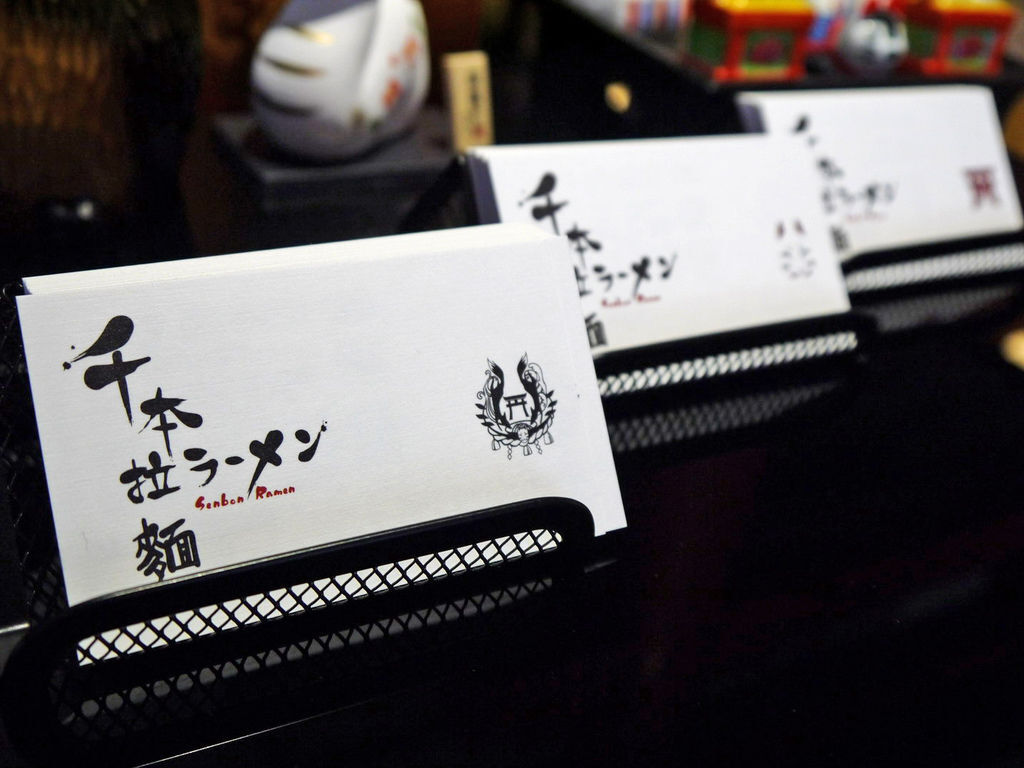 千本拉麺
ラーメン
Senbon Ramen
千本拉
ラーメン
Senbon Ramen
千本拉
ラーメン